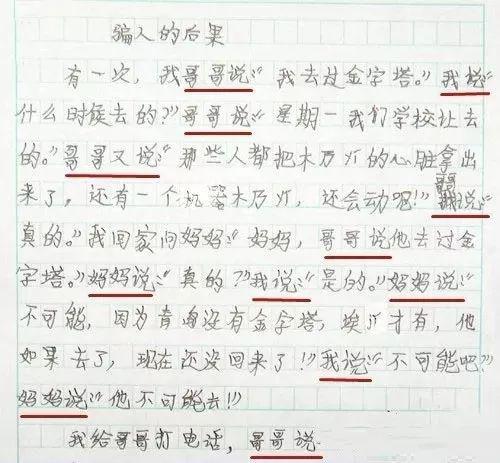 骗人的后果
有一次，我哥哥说：“我去过金字塔。”我说：“
什么时候去的？”哥哥说：“星期一我们学校让去
的。”哥哥又说：“那些人都把木乃灯的心脏拿出
来了，还有一个机器木乃灯，还会动呢！”我说：“
哥哥
真的。”我回家问妈妈：“妈妈，哥哥说他去过金
字塔。”妈妈说：“真的？”我说：“是的。”妈妈说：“
不可能，因为青岛没有金字塔，埃才有，他
如果去了，现在还没回来了！”我说：“不可能吧？”
妈妈说：“他不可能去！”
我给哥哥打电话，哥哥说